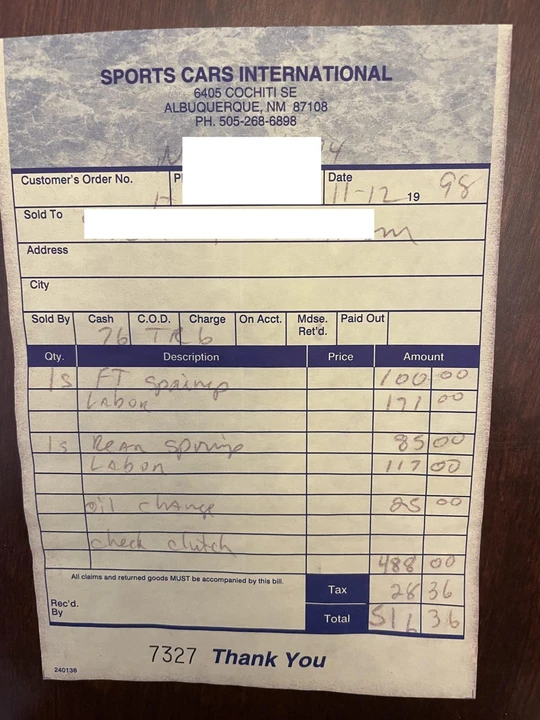 SPORTS CARS INTERNATIONAL
6405 COCHITI SE
ALBUQUERQUE, NM 87108
PH. 505-268-6898
Customer's Order No.
Date
11-12 19 98
Sold To
Address
City
Sold By Cash C.O.D. Charge On Acct. Mdse. Ret'd. Paid Out
76 TR6
Qty. Description Price Amount
1s FT springs 100 00
Labor 171 00
1s Rear springs 85 00
Labor 117 00
oil change 25 00
check clutch
488 00
All claims and returned goods MUST be accompanied by this bill.
Tax 28 36
Rec'd. By
Total 516 36
7327 Thank You
240136